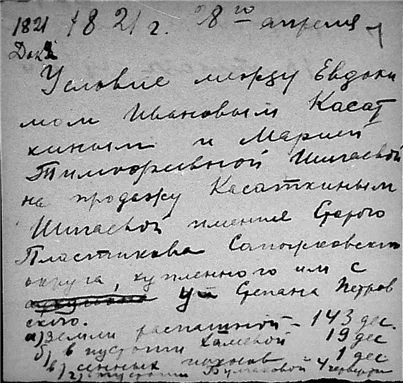 1821 1821 г. 28го апреля
Док.
Условие между Евдоки
мом Ивановым Касат
киным и Марией
Тимофеевной Шигаевой
на продажу Касаткиным
Шигаевой имение Старого
Пластикова Сапожковского
округа, купленного им с
у Степана Петров
ского.
а) земли распашной – 143 дес.
б) в пустоши Хамевой 19 дес
в) сенных покосов 1 дес
г) пустоши 4 четверти